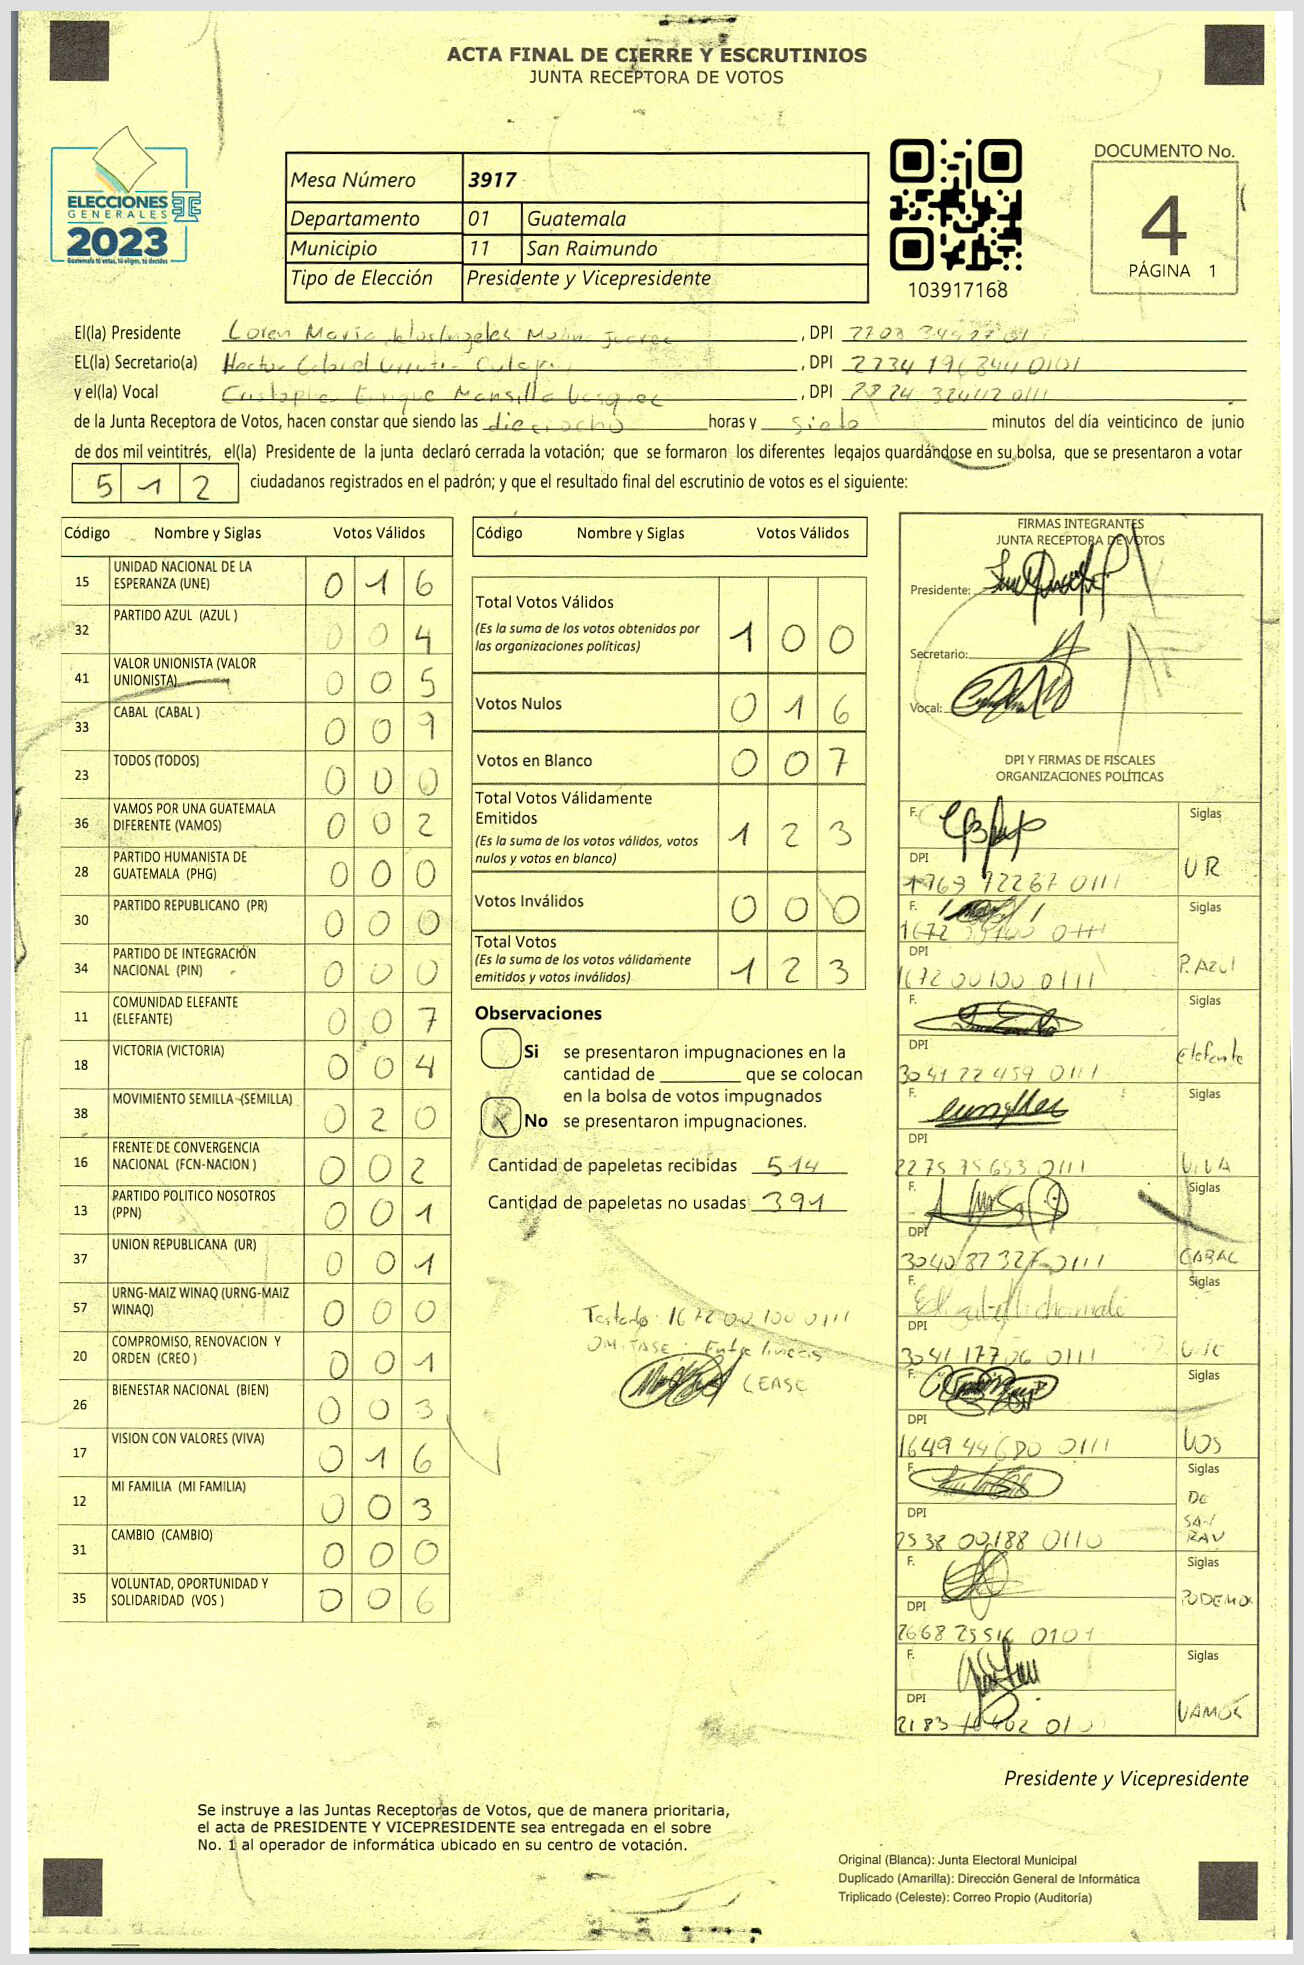 ACTA FINAL DE CIERRE Y ESCRUTINIOS
JUNTA RECEPTORA DE VOTOS
ELECCIONES
GENERALES
2023
Guatemala tú votas, tú eliges, tú decides
Mesa Número 3917
Departamento 01 Guatemala
Municipio 11 San Raimundo
Tipo de Elección Presidente y Vicepresidente
103917168
DOCUMENTO No.
4
PÁGINA 1
El(la) Presidente Loren María , DPI
EL(la) Secretario(a) Hector , DPI 2234 0101
y el(la) Vocal Enrique Mansilla Vasquez , DPI 2824 0111
de la Junta Receptora de Votos, hacen constar que siendo las dieciocho horas y siete minutos del día veinticinco de junio
de dos mil veintitrés, el(la) Presidente de la junta declaró cerrada la votación; que se formaron los diferentes legajos guardándose en su bolsa, que se presentaron a votar
512 ciudadanos registrados en el padrón; y que el resultado final del escrutinio de votos es el siguiente:
Código Nombre y Siglas Votos Válidos
15 UNIDAD NACIONAL DE LA ESPERANZA (UNE) 0 1 6
32 PARTIDO AZUL (AZUL ) 0 0 4
41 VALOR UNIONISTA (VALOR UNIONISTA) 0 0 5
33 CABAL (CABAL ) 0 0 9
23 TODOS (TODOS) 0 0 0
36 VAMOS POR UNA GUATEMALA DIFERENTE (VAMOS) 0 0 2
28 PARTIDO HUMANISTA DE GUATEMALA (PHG) 0 0 0
30 PARTIDO REPUBLICANO (PR) 0 0 0
34 PARTIDO DE INTEGRACIÓN NACIONAL (PIN) 0 0 0
11 COMUNIDAD ELEFANTE (ELEFANTE) 0 0 7
18 VICTORIA (VICTORIA) 0 0 4
38 MOVIMIENTO SEMILLA (SEMILLA) 0 2 0
16 FRENTE DE CONVERGENCIA NACIONAL (FCN-NACION ) 0 0 2
13 PARTIDO POLITICO NOSOTROS (PPN) 0 0 1
37 UNION REPUBLICANA (UR) 0 0 1
57 URNG-MAIZ WINAQ (URNG-MAIZ WINAQ) 0 0 0
20 COMPROMISO, RENOVACION Y ORDEN (CREO ) 0 0 1
26 BIENESTAR NACIONAL (BIEN) 0 0 3
17 VISION CON VALORES (VIVA) 0 1 6
12 MI FAMILIA (MI FAMILIA) 0 0 3
31 CAMBIO (CAMBIO) 0 0 0
35 VOLUNTAD, OPORTUNIDAD Y SOLIDARIDAD (VOS ) 0 0 6
Código Nombre y Siglas Votos Válidos
Total Votos Válidos 1 0 0
(Es la suma de los votos obtenidos por
las organizaciones políticas)
Votos Nulos 0 1 6
Votos en Blanco 0 0 7
Total Votos Válidamente
Emitidos 1 2 3
(Es la suma de los votos válidos, votos
nulos y votos en blanco)
Votos Inválidos 0 0 0
Total Votos
(Es la suma de los votos válidamente
emitidos y votos inválidos) 1 2 3
Observaciones
Si se presentaron impugnaciones en la
cantidad de ________ que se colocan
en la bolsa de votos impugnados
X No se presentaron impugnaciones.
Cantidad de papeletas recibidas 514
Cantidad de papeletas no usadas 391
Testado: 1672 00 100 0111
OMITASE: Entre lineas
LEASE
FIRMAS INTEGRANTES
JUNTA RECEPTORA DE VOTOS
Presidente:
Secretario:
Vocal:
DPI Y FIRMAS DE FISCALES
ORGANIZACIONES POLÍTICAS
F. Siglas
DPI UR
1769 72267 0111
F. Siglas
DPI P. Azul
1672 00 100 0111
F. Siglas
DPI Elefante
3041 22 459 0111
F. Siglas
DPI VIVA
2275 75653 0111
F. Siglas
DPI CABAL
3040 87327 0111
F. Siglas
DPI
3041 17706 0111
F. Siglas
DPI VOS
1649 0111
F. Siglas
DPI
2538 00188 0110
F. Siglas
DPI PODEMOS
2668 0101
F. Siglas
DPI VAMOS
2183
Presidente y Vicepresidente
Se instruye a las Juntas Receptoras de Votos, que de manera prioritaria,
el acta de PRESIDENTE Y VICEPRESIDENTE sea entregada en el sobre
No. 1 al operador de informática ubicado en su centro de votación.
Original (Blanca): Junta Electoral Municipal
Duplicado (Amarilla): Dirección General de Informática
Triplicado (Celeste): Correo Propio (Auditoría)